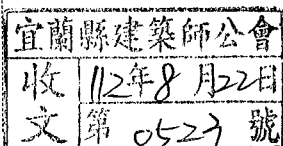 宜蘭縣建築師公會
收文
112年8月22日
第 0523 號